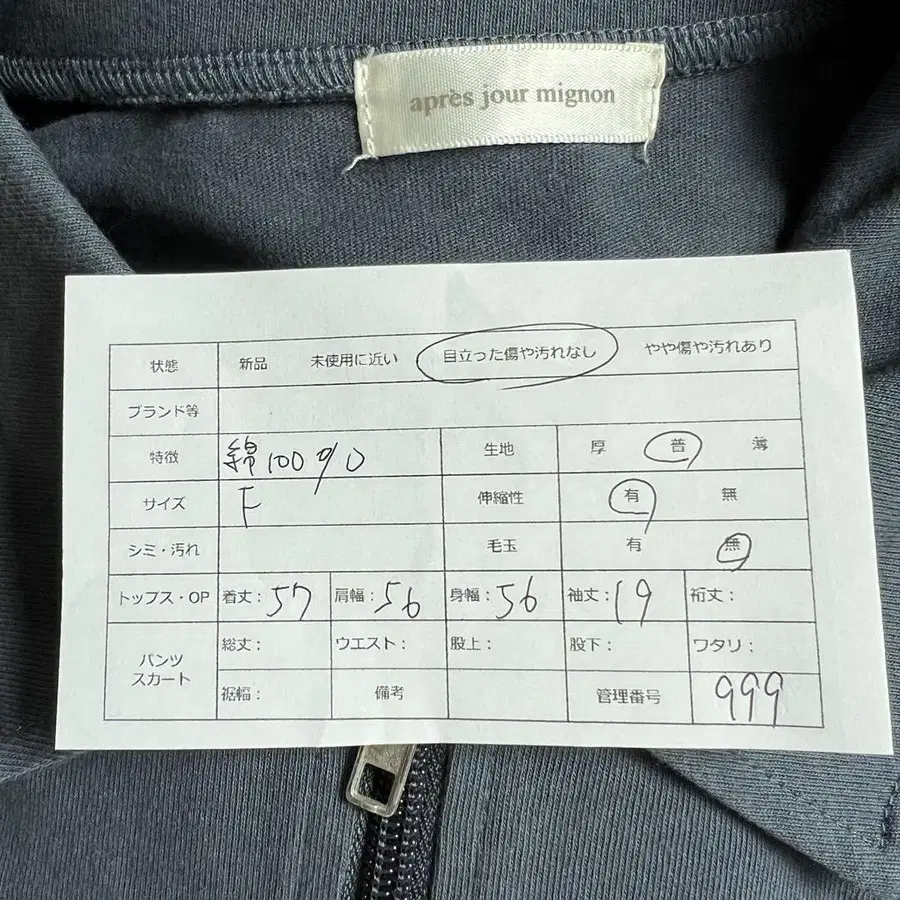 après jour mignon
状態 新品 未使用に近い 目立った傷や汚れなし やや傷や汚れあり
ブランド等
特徴 綿100% 生地 厚 普 薄
サイズ F 伸縮性 有 無
シミ・汚れ 毛玉 有 無
トップス・OP 着丈:57 肩幅:56 身幅:56 袖丈:19 裄丈:
パンツ
スカート
総丈: ウエスト: 股上: 股下: ワタリ:
裾幅: 備考 管理番号 999